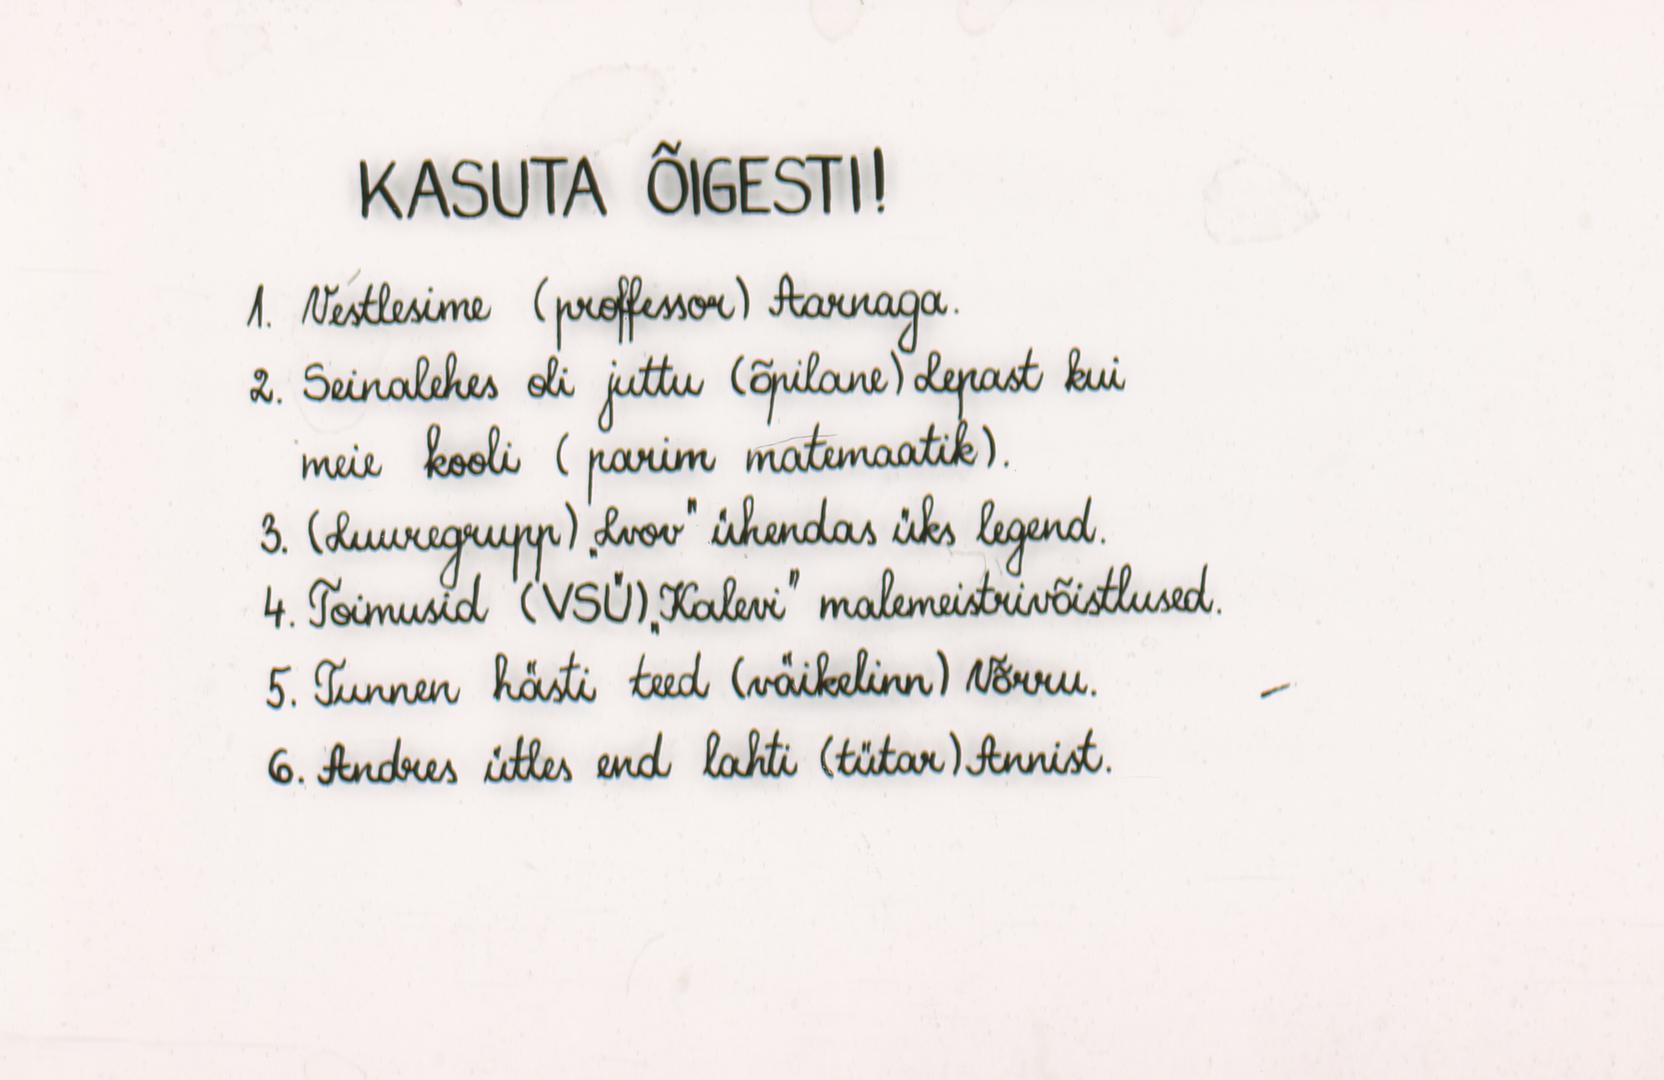 KASUTA ÕIGESTI!
1. Vestlesime (proffessor) Aarnaga.
2. Seinalehes oli juttu (õpilane) Lepast kui
meie kooli (parim matemaatik).
3. (Luuregrupp) „Lvov" ühendas üks legend.
4. Toimusid (VSÜ) „Kalevi" malemeistrivõistlused.
5. Tunnen hästi teed (väikelinn) Võrru.
6. Andres ütles end lahti (tütar) Annist.